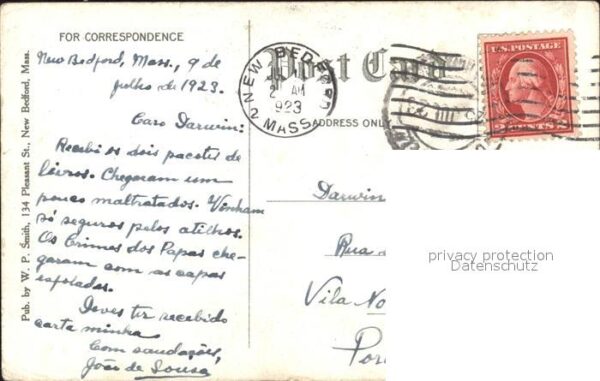 FOR CORRESPONDENCE
Post Card
New Bedford, Mass., 9 de
julho de 1923.
Caro Darwin:
Recebi os dois pacotes de
livros. Chegaram um
pouco maltratados. Vinham
só seguros pelos atilhos.
Os Crimes dos Papas che-
garam com as capas
esfoladas.
Deves ter recebido
carta minha
Com saudações,
João de Sousa
Pub. by W. P. Smith, 134 Pleasant St., New Bedford, Mass.
NEW BEDFORD
2 AM
1923
MASS
U.S. POSTAGE
CENTS
ADDRESS ONLY
Darwin
Rua
Vila No
Por
privacy protection
Datenschutz